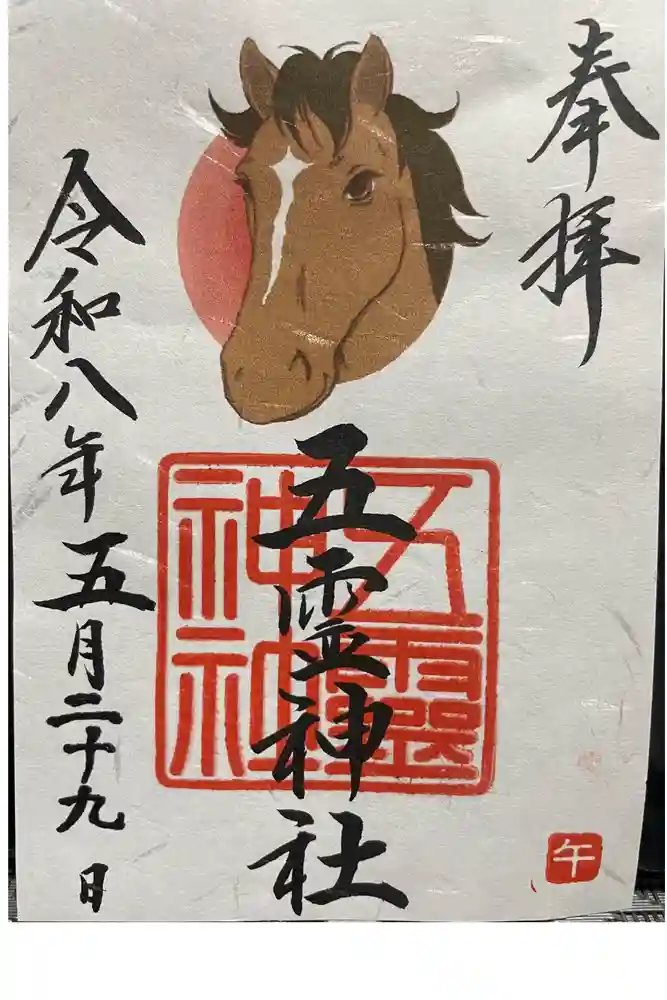 奉拝
五霊神社
五霊神社
令和八年五月二十九日
午